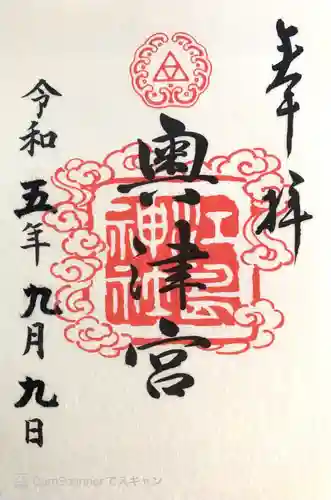 奉拝
奥津宮
江島
神社
令和五年九月九日
CamScannerでスキャン